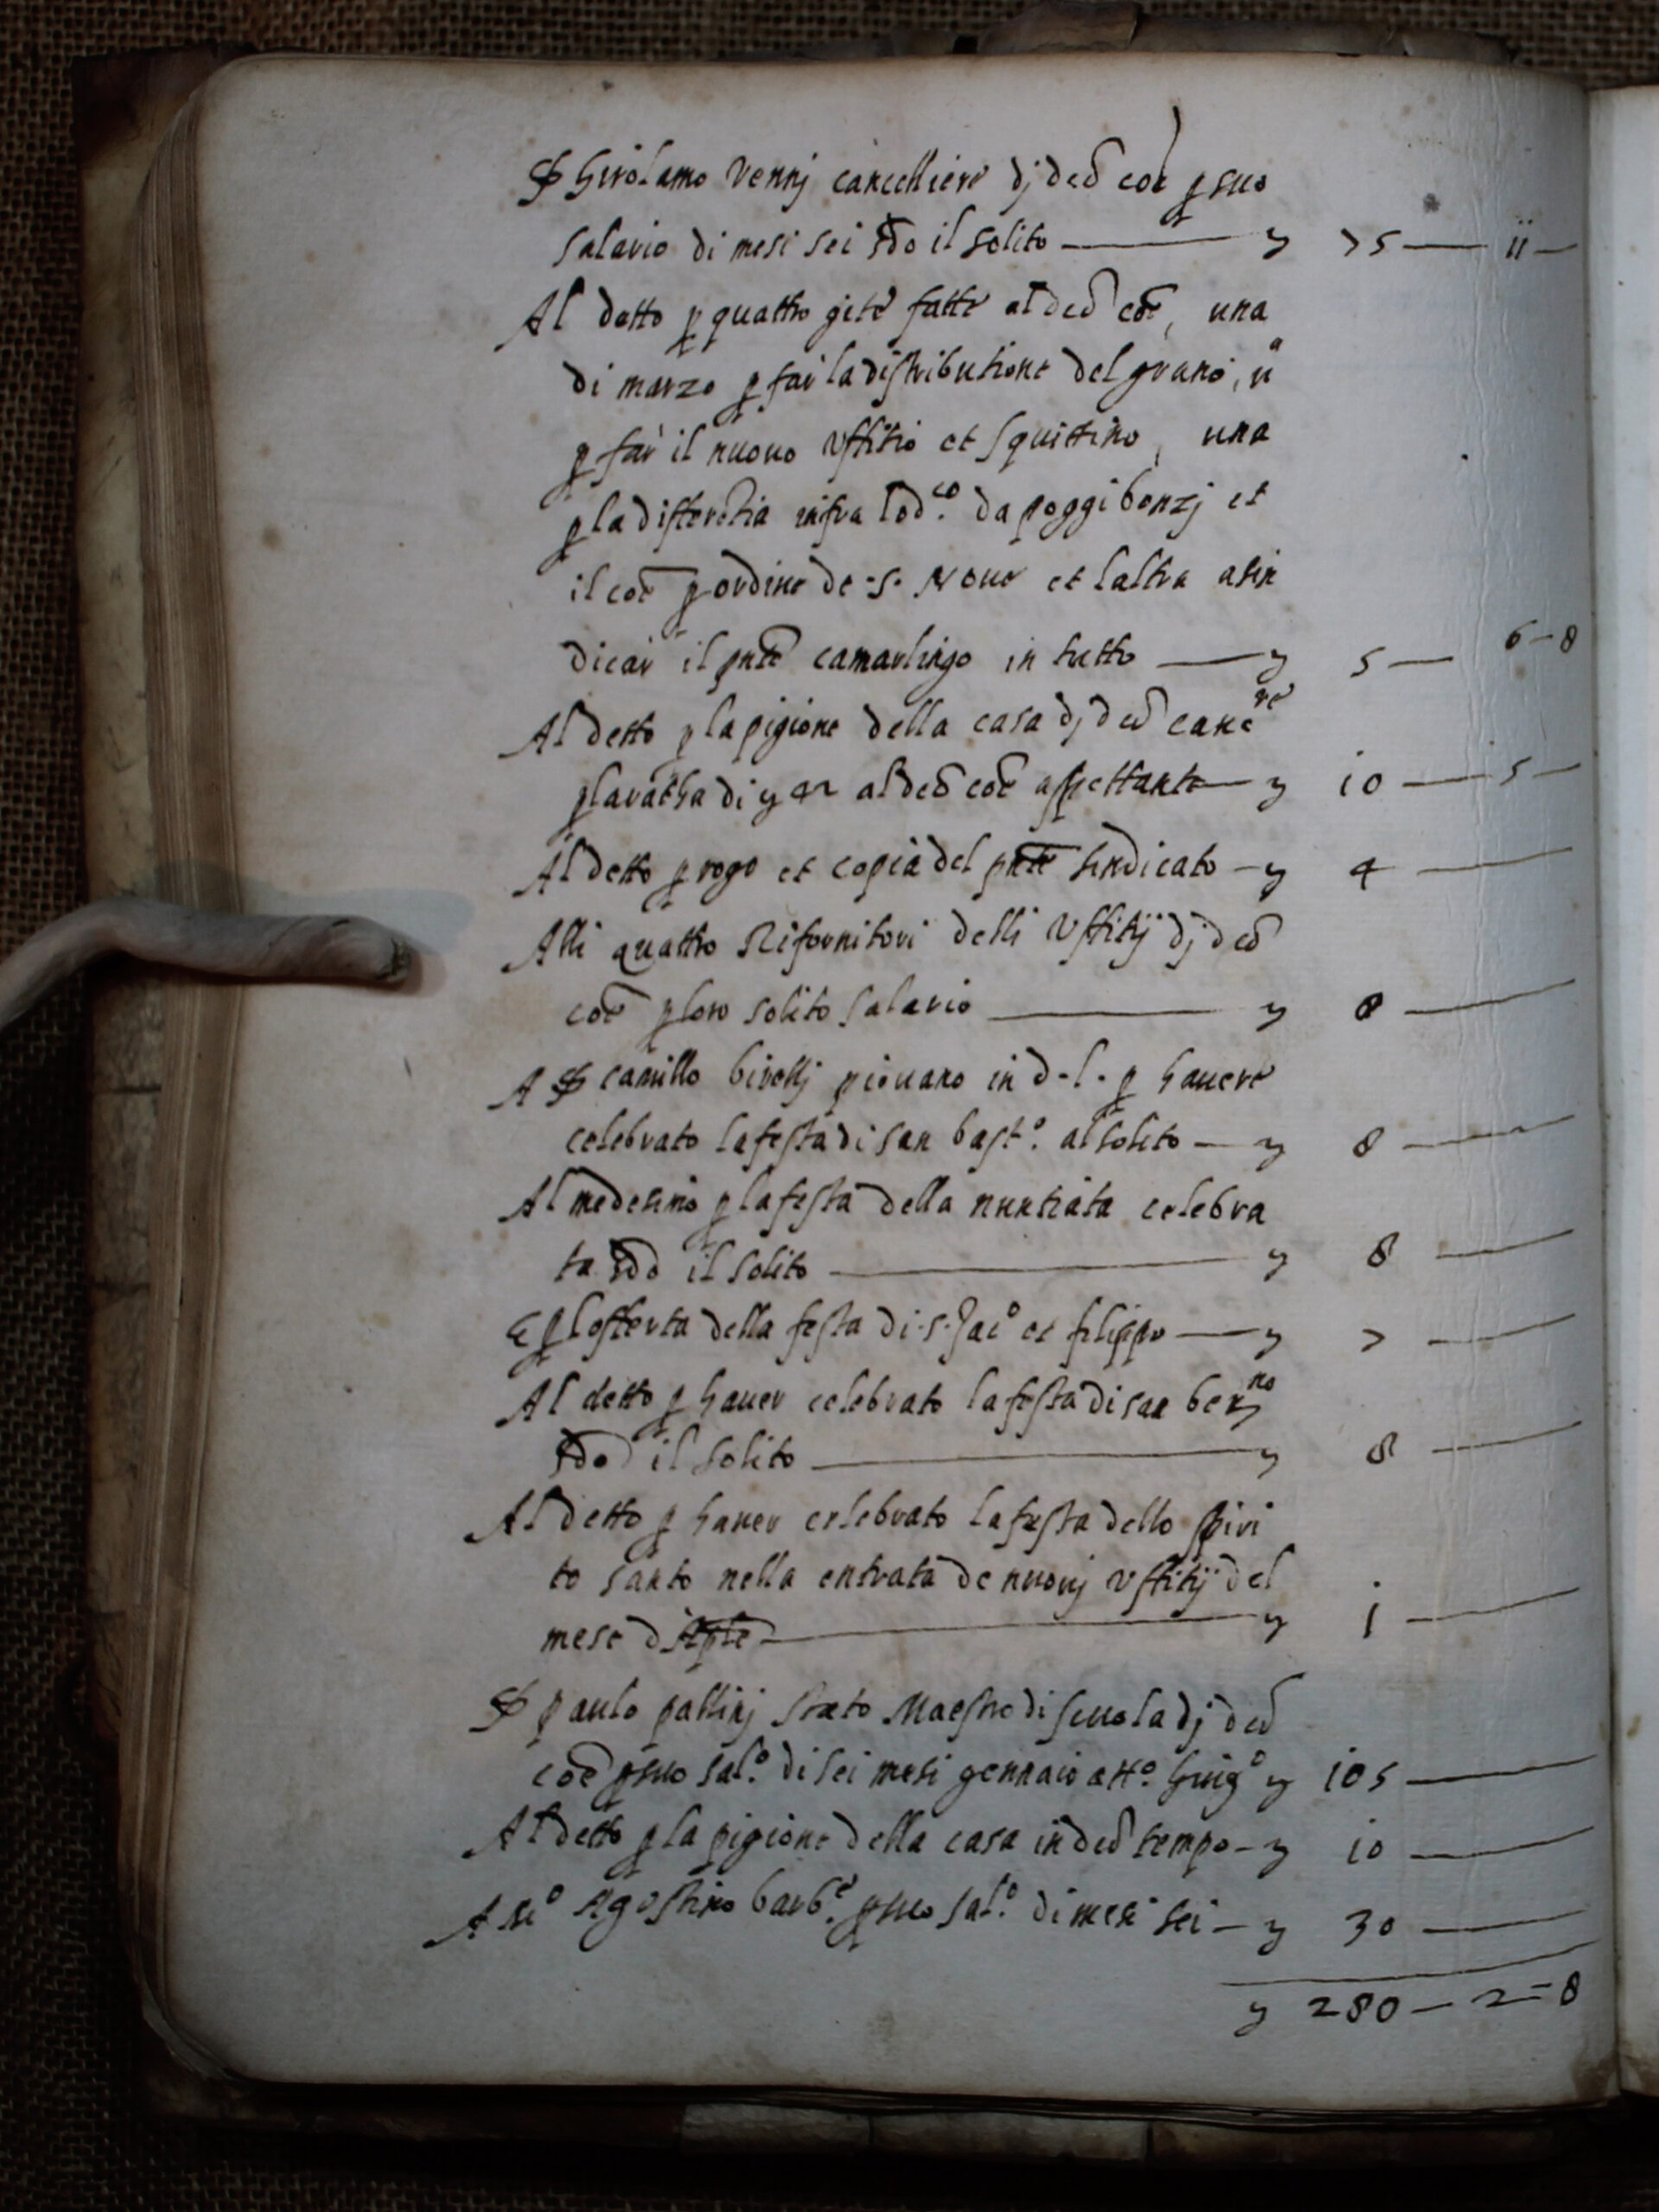 Girolamo Vennj cancelliere dj deō coē p suo
salario di mesi sei sdo il solito — y 75 — ii —
Al detto p quattro gite fatte al deō coē, una
di marzo p far la distributione del grano, uᵃ
p far il nuovo Uffitio et squittino, una
p la differētia infra lod.ᶜᵒ da poggibonzj et
il coē p ordine de .S. Nove et laltra a sin
dicar il pntē camarlingo in tutto — y 5 — 6 - 8
Al detto p la pigione della casa dj deō cancʳᵉ
p la rata di y al deō coē aspettante — y io — 5 —
Al detto p rogo et copia del pntē sindicato — y 4 —
Alli quattro Rifornitori delli Uffitij dj deō
coē p loro solito salario — y 8 —
A camillo pievano in d. l. p havere
celebrato la festa di san bast.º al solito — y 8 —
Al medesimo p la festa della nuntiata celebra
ta sdo il solito — y 8 —
E p lofferta della festa di .s. Jacº et filippo — y 7 —
Al detto p haver celebrato la festa di san berⁿᵒ
sdo il solito — y 8 —
Al detto p haver celebrato la festa dello spiri
to santo nella entrata de nuovj uffitij del
mese — y j —
paulo pallinj stato Maestro di scuola dj deō
coē p suo sal.º di sei mesi gennaio att.º Giugº y io5 —
Al detto p la pigione della casa in deō tempo — y io —
A Agostino barb.ᵉ p suo sal.º di mesi sei — y 30 —
y 280 — 2 = 8